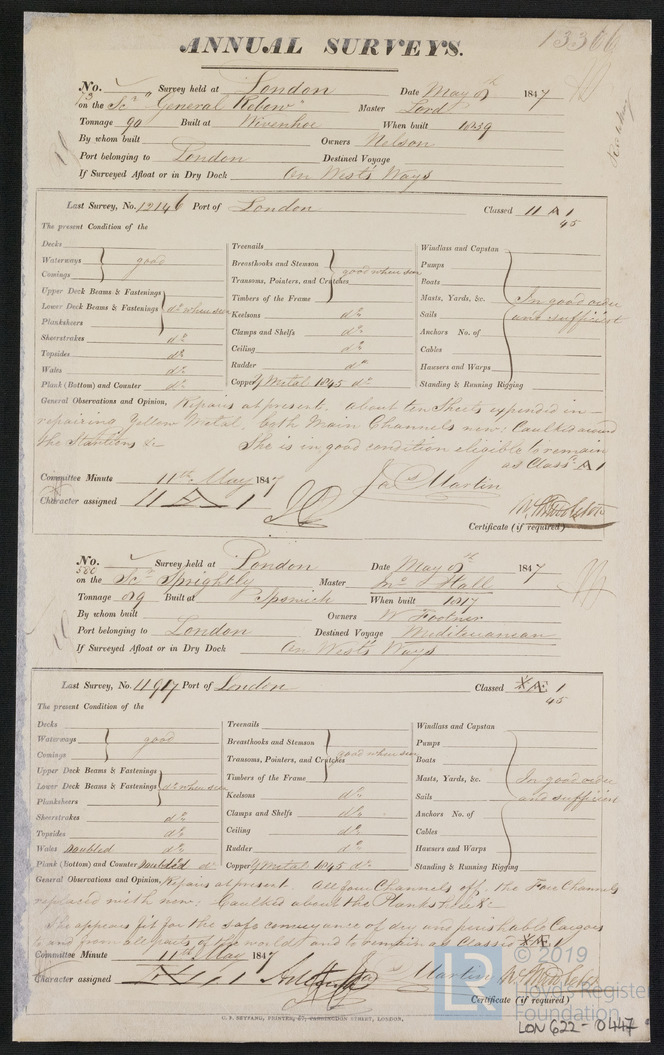 ANNUAL SURVEYS.
13366
No. 73 Survey held at London Date May 8th 1847
on the Scr "General Rebow" Master Lord
Tonnage 90 Built at Wivenhoe When built 1839
By whom built Owners Nelson
Port belonging to London Destined Voyage
If Surveyed Afloat or in Dry Dock On West's Ways
Last Survey, No. 12146 Port of London Classed 11 A 1
45
The present Condition of the
Decks
Waterways good
Comings
Upper Deck Beams & Fastenings
Lower Deck Beams & Fastenings do when seen
Planksheers
Sheerstrakes do
Topsides do
Wales do
Plank (Bottom) and Counter do
Treenails
Breasthooks and Stemson good when seen
Transoms, Pointers, and Crutches
Timbers of the Frame
Keelsons do
Clamps and Shelfs do
Ceiling do
Rudder do
Copper Y Metal 1845 do
Windlass and Capstan
Pumps
Boats
Masts, Yards, &c. In good order
Sails and sufficient
Anchors No. of
Cables
Hawsers and Warps
Standing & Running Rigging
General Observations and Opinion, Repairs at present. About ten Sheets expended in
repairing Yellow Metal, both Main Channels new: Caulked around
the Stantions &c She is in good condition eligible to remain
as Class'd A 1
Committee Minute 11th May 1847 Jas Martin
Character assigned 11 A 1
Certificate (if required)
No. 580 Survey held at London Date May 8th 1847
on the Scr Sprightly Master Mc Hall
Tonnage 89 Built at Ipswich When built 1817
By whom built Owners W Footner
Port belonging to London Destined Voyage Mediteranean
If Surveyed Afloat or in Dry Dock On West's Ways
Last Survey, No. 11917 Port of London Classed *Æ 1
45
The present Condition of the
Decks
Waterways good
Comings
Upper Deck Beams & Fastenings
Lower Deck Beams & Fastenings do when seen
Planksheers
Sheerstrakes do
Topsides do
Wales Doubled do
Plank (Bottom) and Counter Doubled do
Treenails
Breasthooks and Stemson good when seen
Transoms, Pointers, and Crutches
Timbers of the Frame
Keelsons do
Clamps and Shelfs do
Ceiling do
Rudder do
Copper Y Metal 1845 do
Windlass and Capstan
Pumps
Boats
Masts, Yards, &c. In good order
Sails and sufficient
Anchors No. of
Cables
Hawsers and Warps
Standing & Running Rigging
General Observations and Opinion, Repairs at present. All four Channels off, the Fore Channels
replaced with new: Caulked about the Planksheer &c
She appears fit for the safe conveyance of dry and perishable Cargoes
to and from all parts of the world and to remain as Classed *Æ 1
Committee Minute 11th May 1847
Character assigned Jas Martin
Certificate (if required)
G. F. BEYFANG, PRINTER, 57, FARRINGDON STREET, LONDON.
LR © 2019
Lloyd's Register
Foundation
LON 622-0447